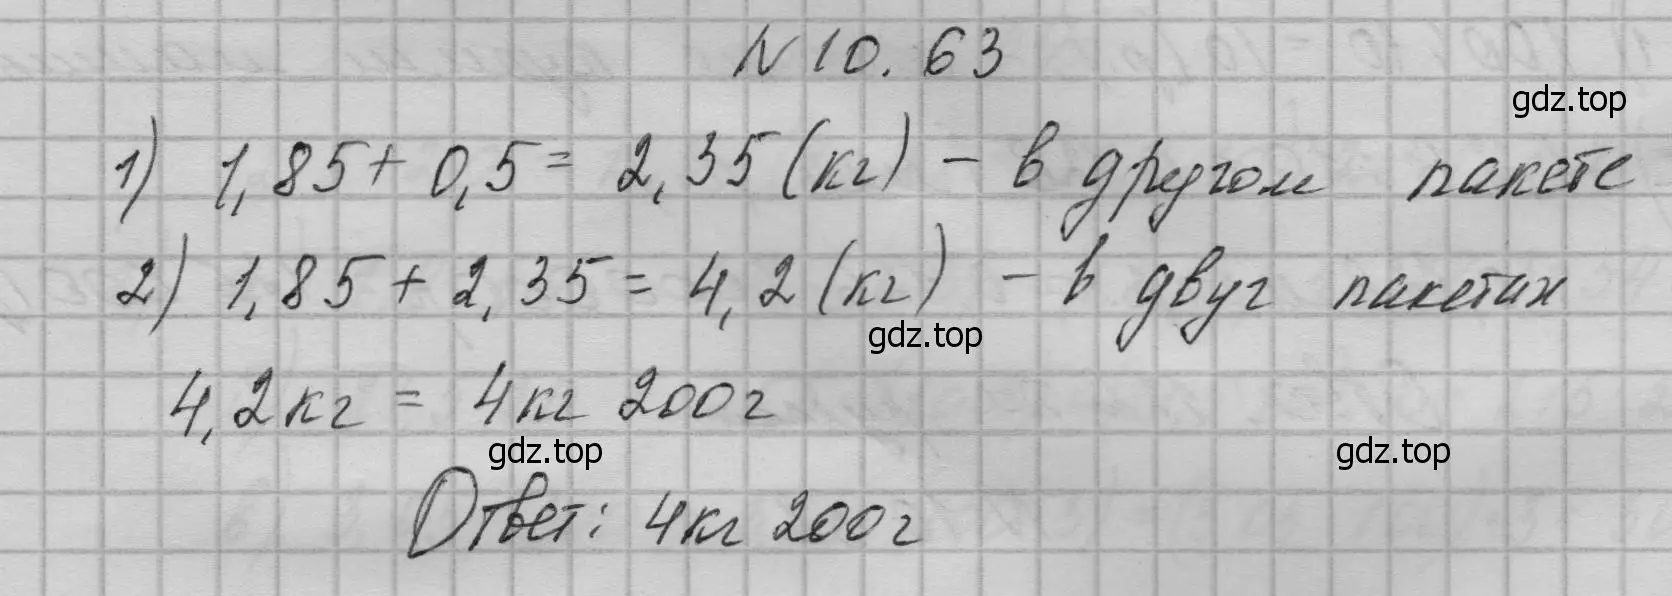 N 10.63
gdz.top
1) 1,85 + 0,5 = 2,35 (кг) - в другом пакете
2) 1,85 + 2,35 = 4,2 (кг) - в двух пакетах
gdz.top
4,2 кг = 4 кг 200 г
gdz.top gdz.top
Ответ: 4 кг 200 г